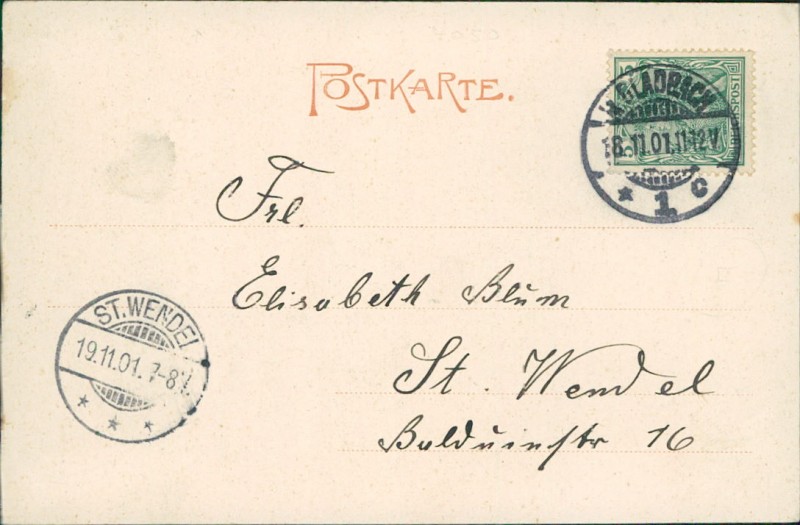 POSTKARTE.
M.GLADBACH
18.11.01.11-12V.
* 1 C
REICHSPOST
Frl.
Elisabeth Blum
St. Wendel
Balduinstr 16
ST. WENDEL
19.11.01. 7-8V.
* * *